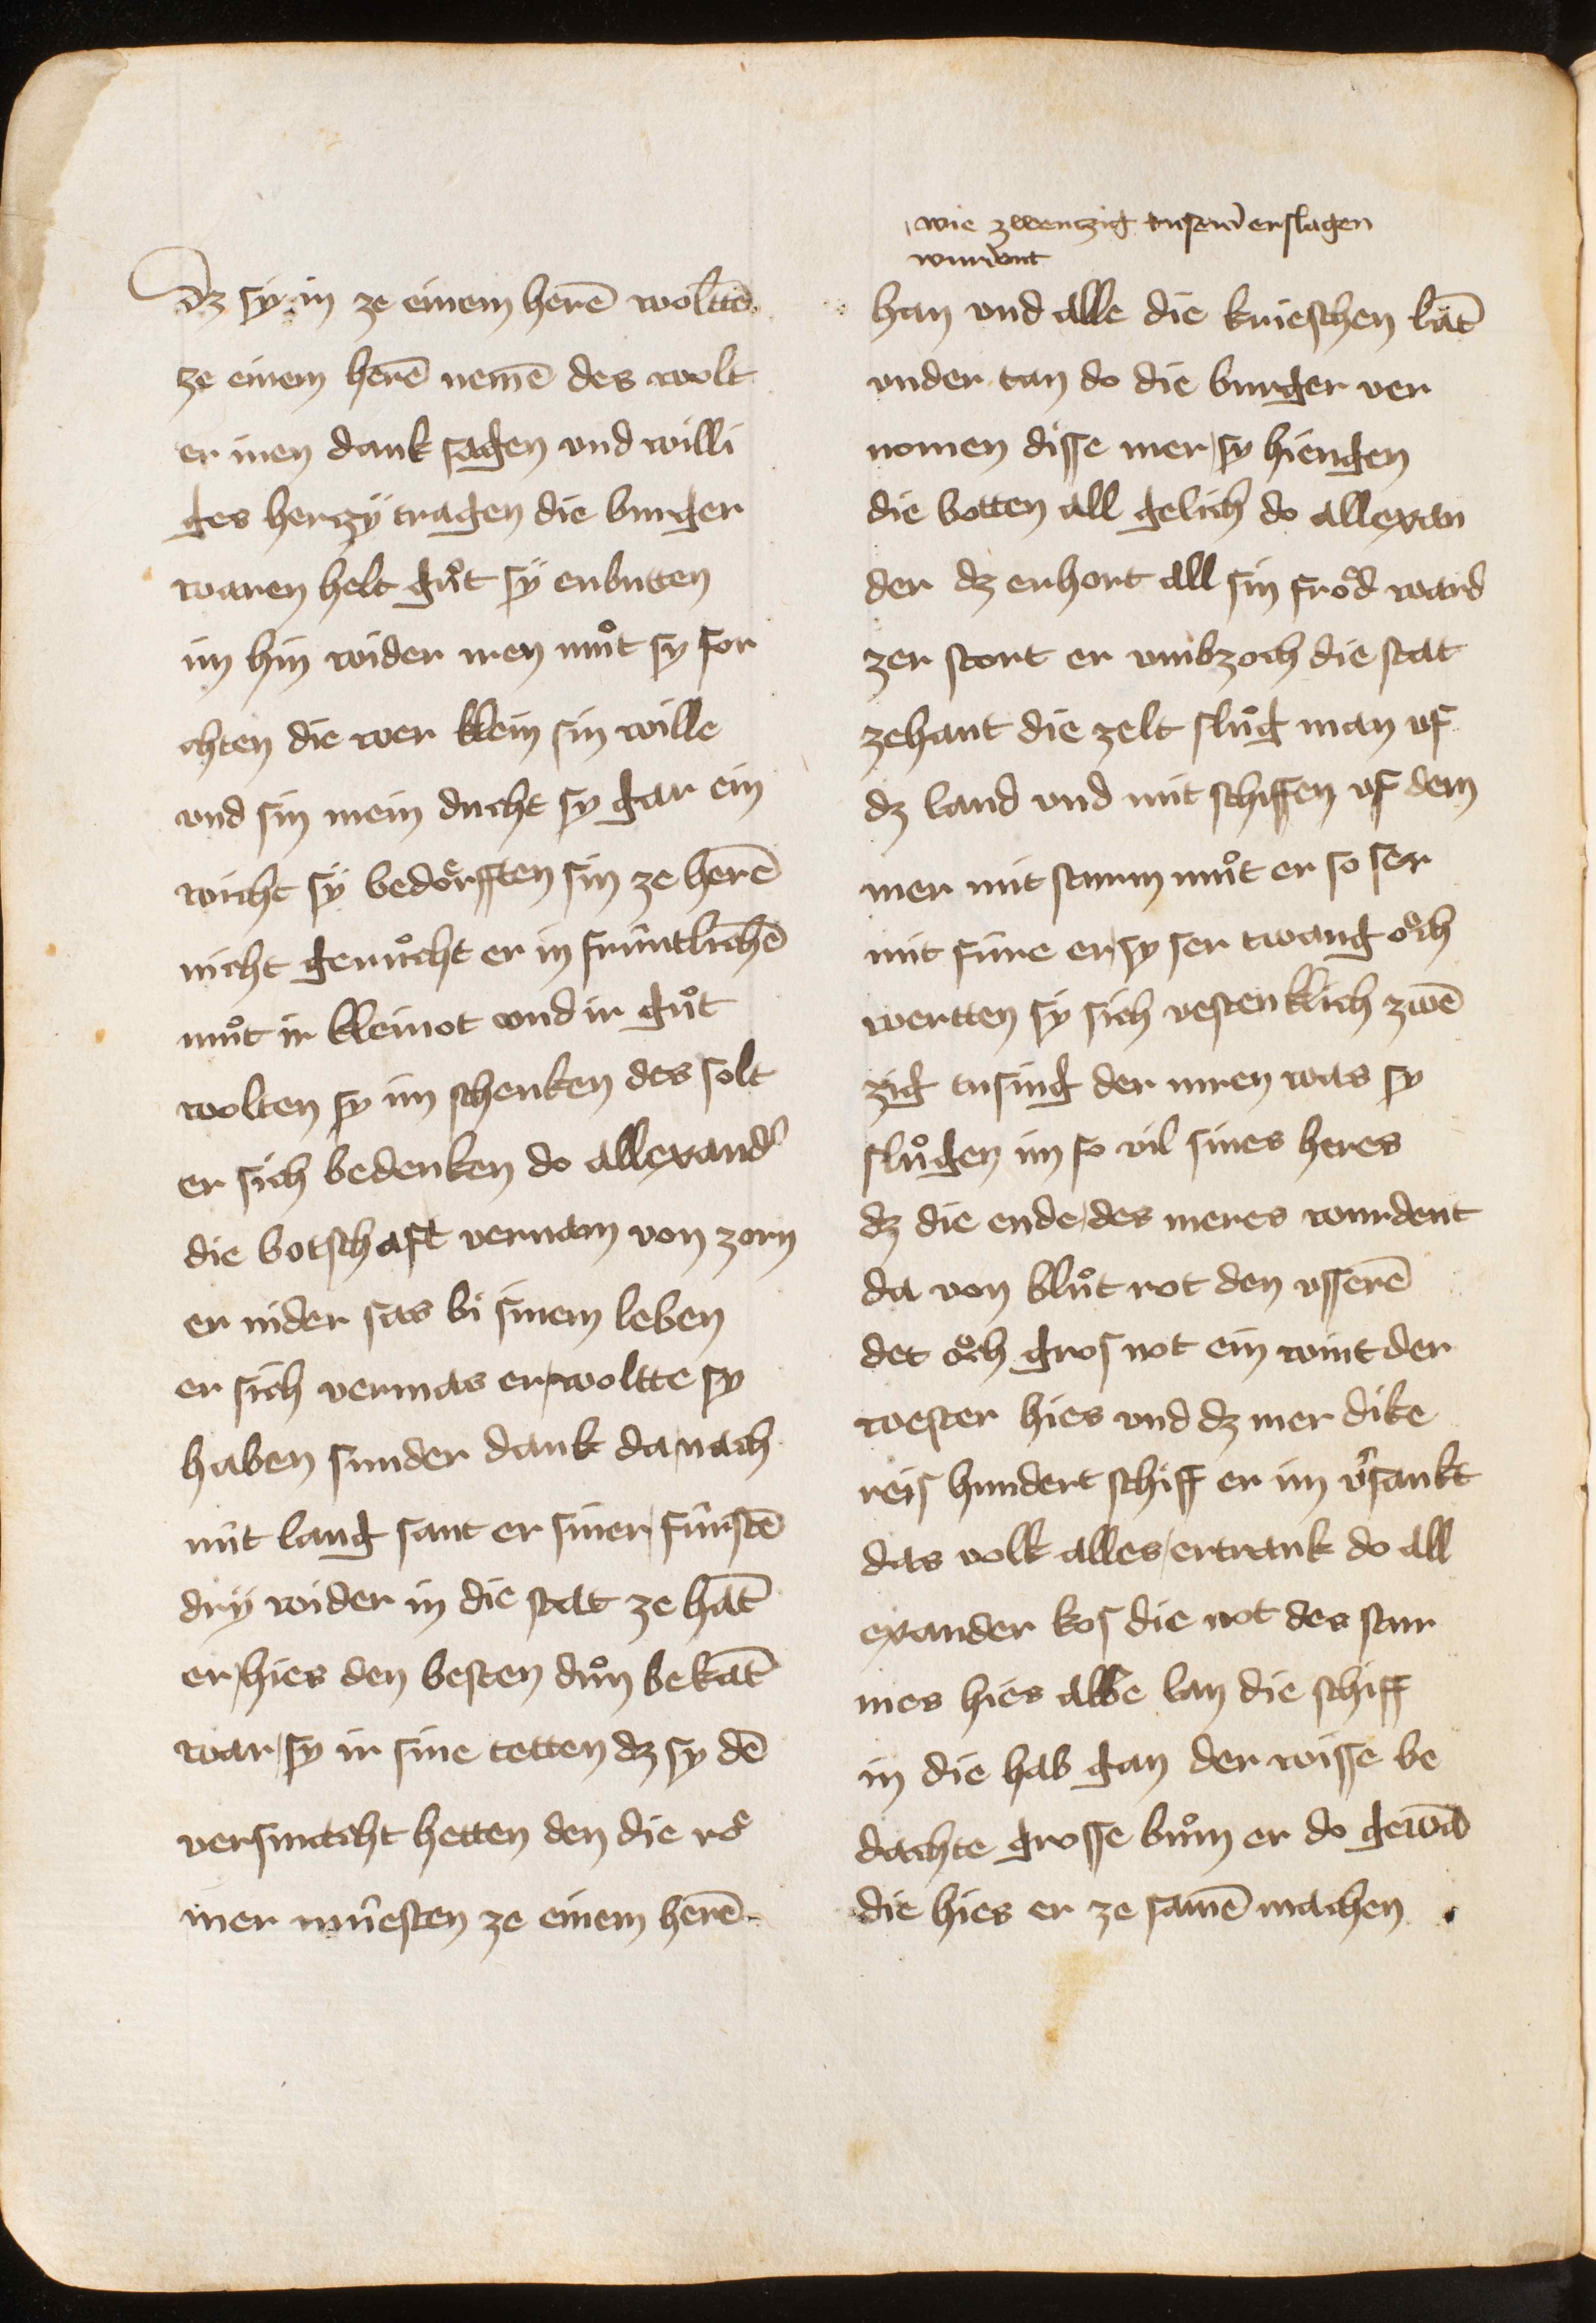 dz sy in ze einem herē woltē
ze einem herē nemē des wolt
er inen dank sagen vnd willi
ges herczÿ tragen die burger
waren helt guͦt sÿ enbutten
im hin wider iren muͦt sy for
chten die wer klein sin wille
vnd sin mein ducht sy gar ein
wicht sÿ bedoͤrfften sin ze herē
nicht geruͦcht er in fruntlichē
muͦt ir kleinot vnd ir guͦt
wolten sy im schenken des solt
er sich bedenken do allexandˀ
die botschaft vernam von zorn
er nider sas bi sinem leben
er sich vermas er woltte sy
haben sunder dank da nach
nüt lang sant er siner fürstē
drÿ wider in die stat ze hāt
er hies den besten duͦn bekāt
war sy ir sine tetten dz sy dē
versmacht hetten den die roͤ
mer müesten ze einem herē
wie zwenczig tusend erslagen
wurdent
han vnd alle die krieschen lāt
vnder tan do die burger ver
nomen disse mer sy hiengen
die botten all gelich do allexan
der dz erhort all sin froͤd ward
zer stort er vmbzoch die stat
zehant die zelt sluͦg man vf
dz land vnd mit schiffen vf dem
mer mit sturm muͦt er so ser
mit füre er sy ser twang oͮch
wertten sy sich vestenklich zwē
zig tusing der iuren was sy
sluͦgen im so vil sines heres
dz die ende des meres wurdent
da von bluͦt rot den vsserē
det oͮch gros not ein wint der
wester hies vnd dz mer dike
reis hundert schiff er im vˀsankt
das volk alles ertrank do all
exander kos die not des stur
mes hies alle lan die schiff
in die hab gan der wisse be
dachte grosse buͦm er do gewā
die hies er ze samē machen